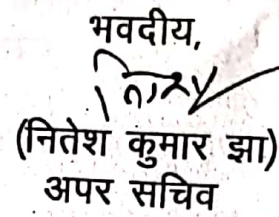 भवदीय,
(नितेश कुमार झा)
अपर सचिव